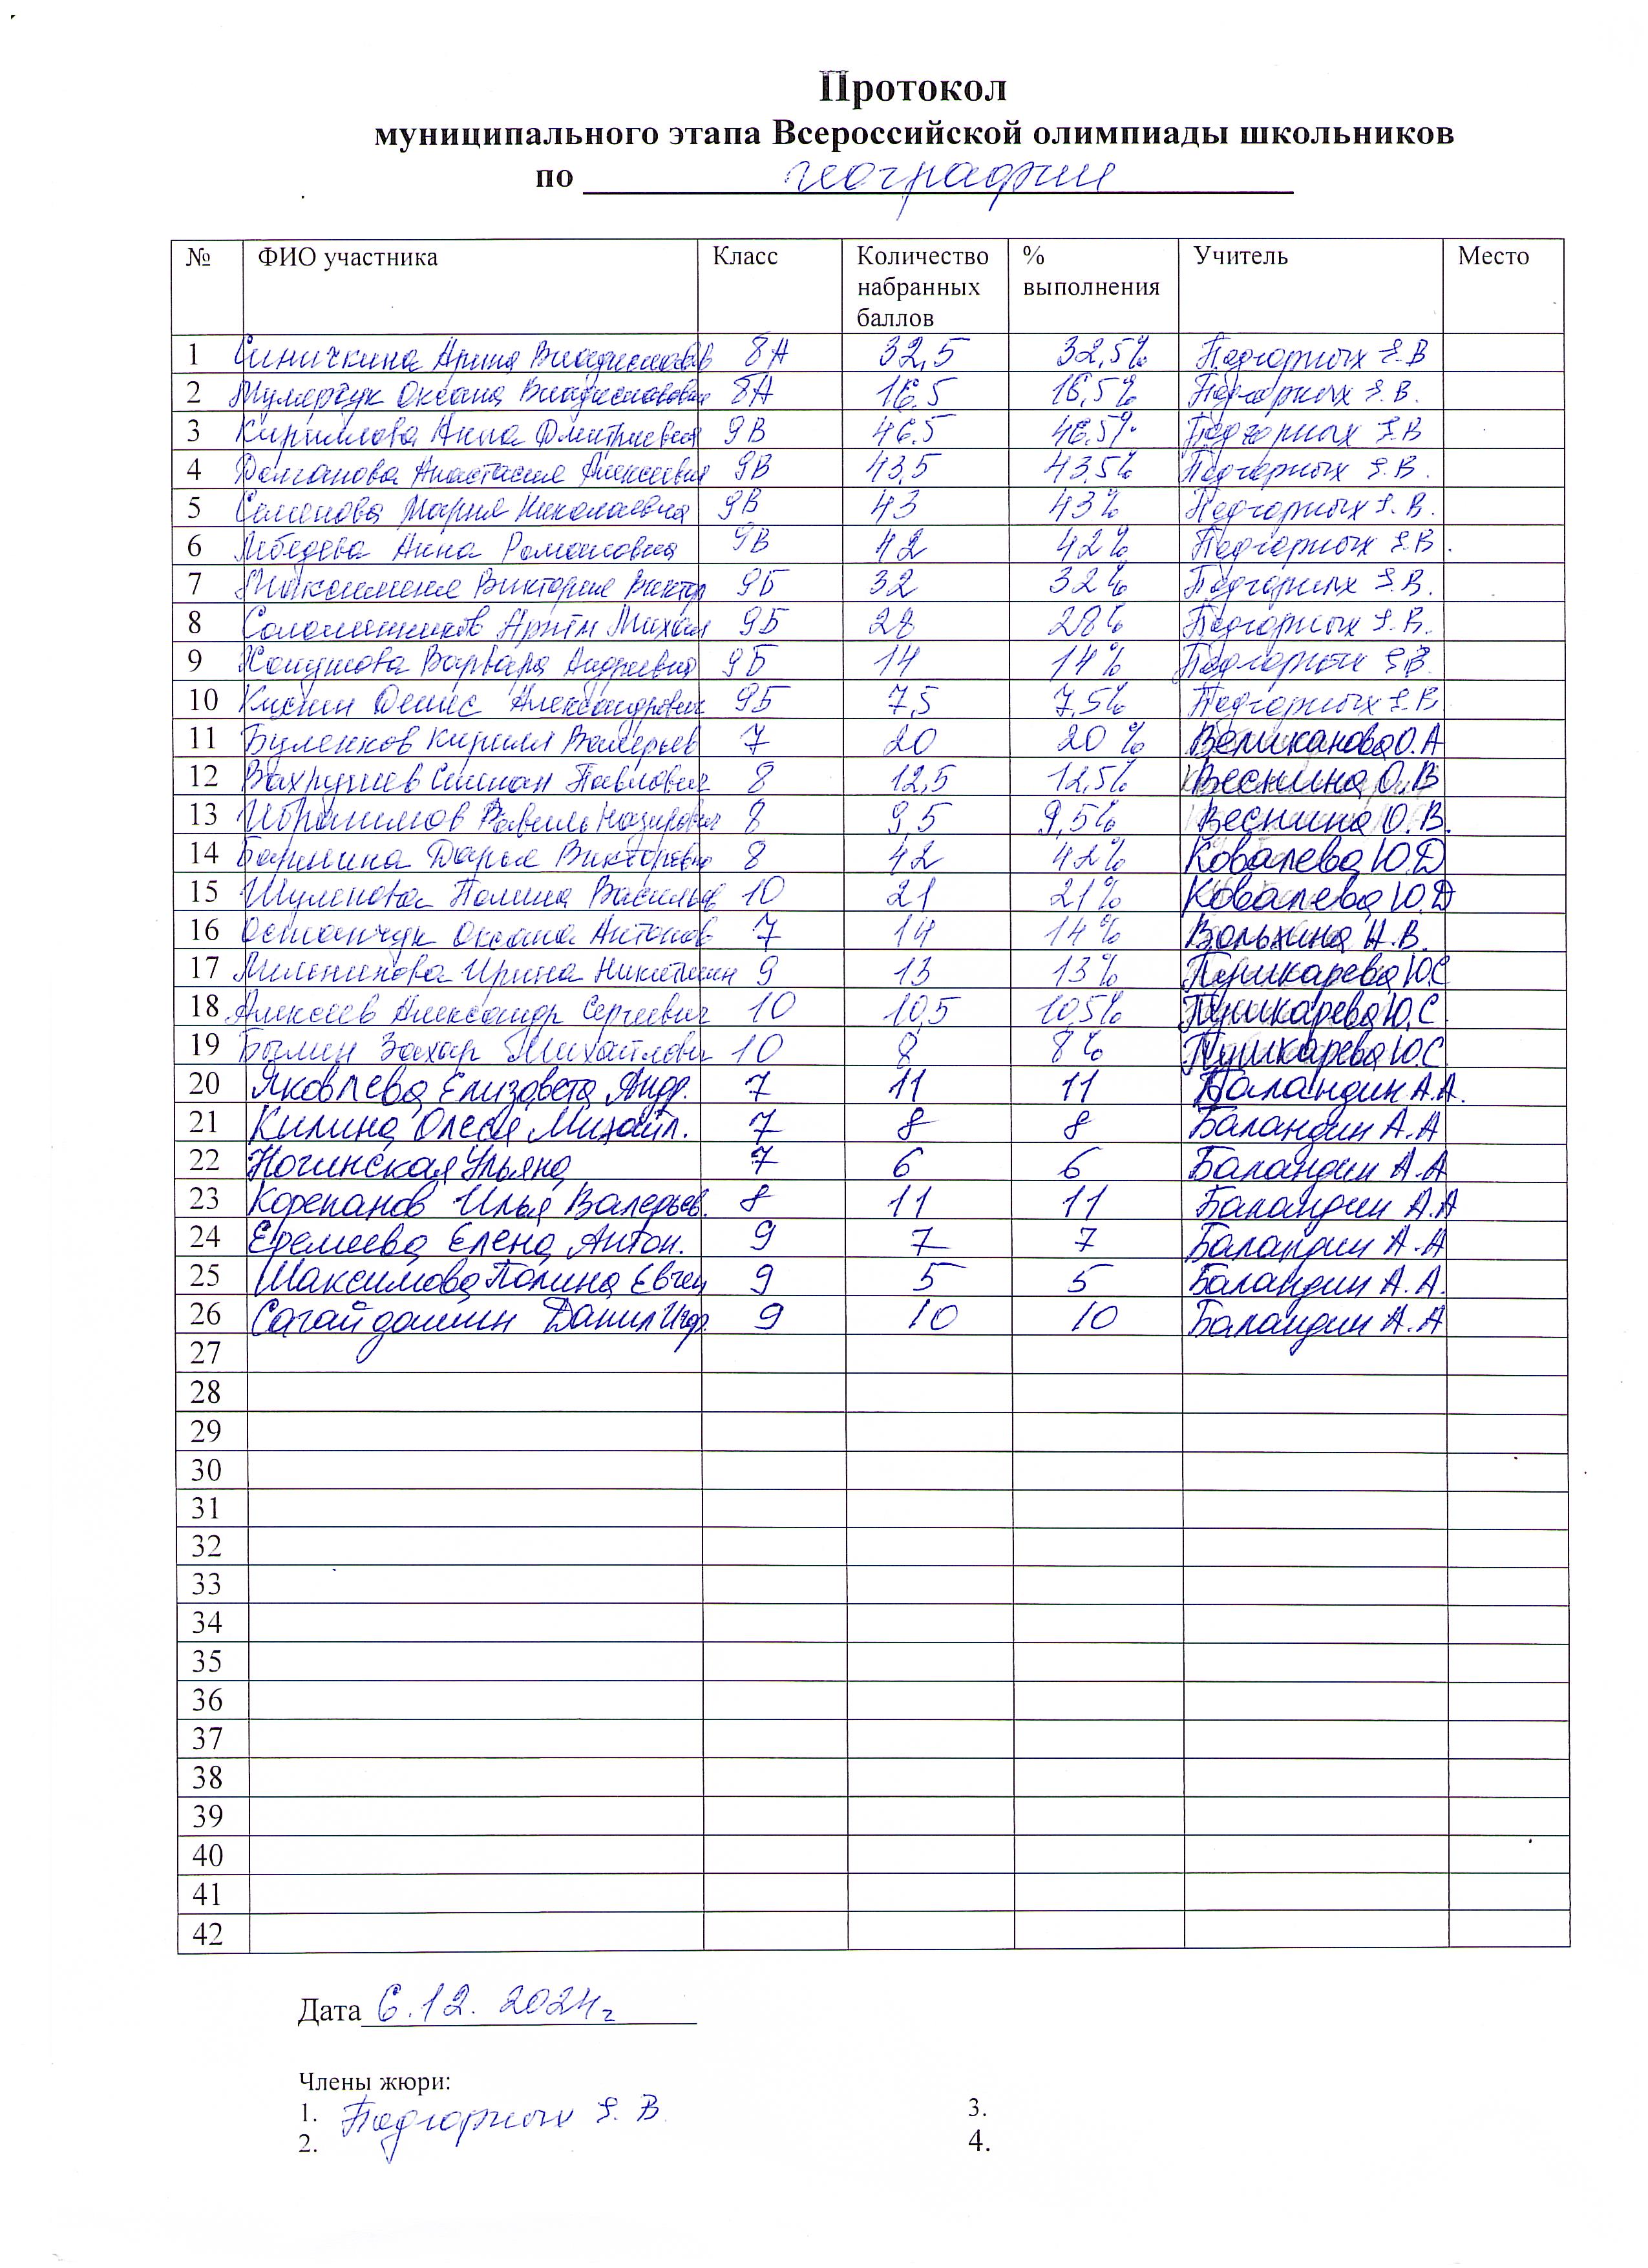 Протокол
муниципального этапа Всероссийской олимпиады школьников
по географии
№ ФИО участника Класс Количество набранных баллов % выполнения Учитель Место
1 Синичкина Арина Владиславов 8А 32,5 32,5% Подгорных Е.В
2 Оксана Владиславовна 8А 16,5 16,5% Подгорных Е.В.
3 Кириллова Анна Дмитриевна 9В 46,5 46,5% Подгорных Е.В
4 Анастасия Алексеевна 9В 43,5 43,5% Подгорных Е.В.
5 Семенова Мария Николаевна 9В 43 43% Подгорных Е.В.
6 Лебедева Анна Романовна 9В 42 42% Подгорных Е.В.
7 Виктория Виктор 9Б 32 32% Подгорных Е.В.
8 Артём Михай 9Б 28 28% Подгорных Е.В.
9 Варвара Андреевна 9Б 14 14% Подгорных Е.В.
10 Денис Александрович 9Б 7,5 7,5% Подгорных Е.В
11 Буленков Кирилл Валерьев 7 20 20% Великанова О.А
12 Вахрушев Степан Павлович 8 12,5 12,5% Веснина О.В
13 Ибрагимов Равиль Назирович 8 9,5 9,5% Веснина О.В.
14 Дарья Викторовна 8 42 42% Ковалева Ю.Д
15 Шуленова Полина Васильев 10 21 21% Ковалева Ю.Д
16 Остапчук Оксана Антонов 7 14 14% Вольхина Н.В.
17 Ирина Никитични 9 13 13% Пушкарева Ю.С
18 Алексеев Александр Сергеевич 10 10,5 10,5% Пушкарева Ю.С.
19 Захар Михайлович 10 8 8% Пушкарева Ю.С
20 Яковлева Елизавета Андр. 7 11 11 Баландин А.А.
21 Килина Олеся Михайл. 7 8 8 Баландин А.А
22 Ногинская Ульяна 7 6 6 Баландин А.А
23 Корепанов Илья Валерьев. 8 11 11 Баландин А.А
24 Еремеева Елена Антон. 9 7 7 Баландин А.А
25 Шаксимова Полина Евген 9 5 5 Баландин А.А.
26 Данил Игор. 9 10 10 Баландин А.А
27
28
29
30
31
32
33
34
35
36
37
38
39
40
41
42
Дата 6.12.2024г
Члены жюри:
1. Подгорных Е.В. 3.
2. 4.